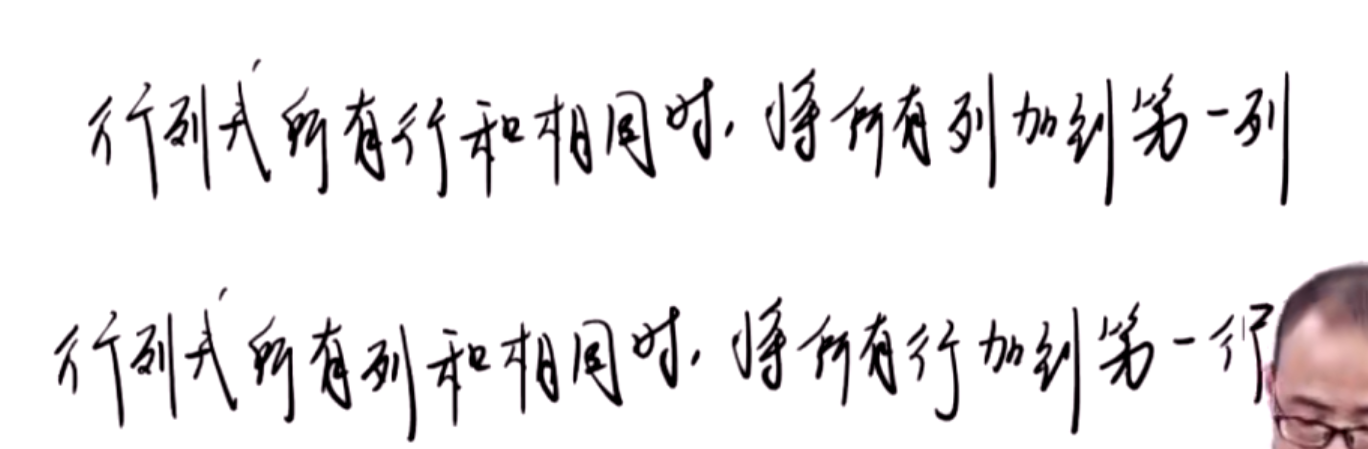 行列式所有行和相同时，将所有列加到第一列
行列式所有列和相同时，将所有行加到第一行